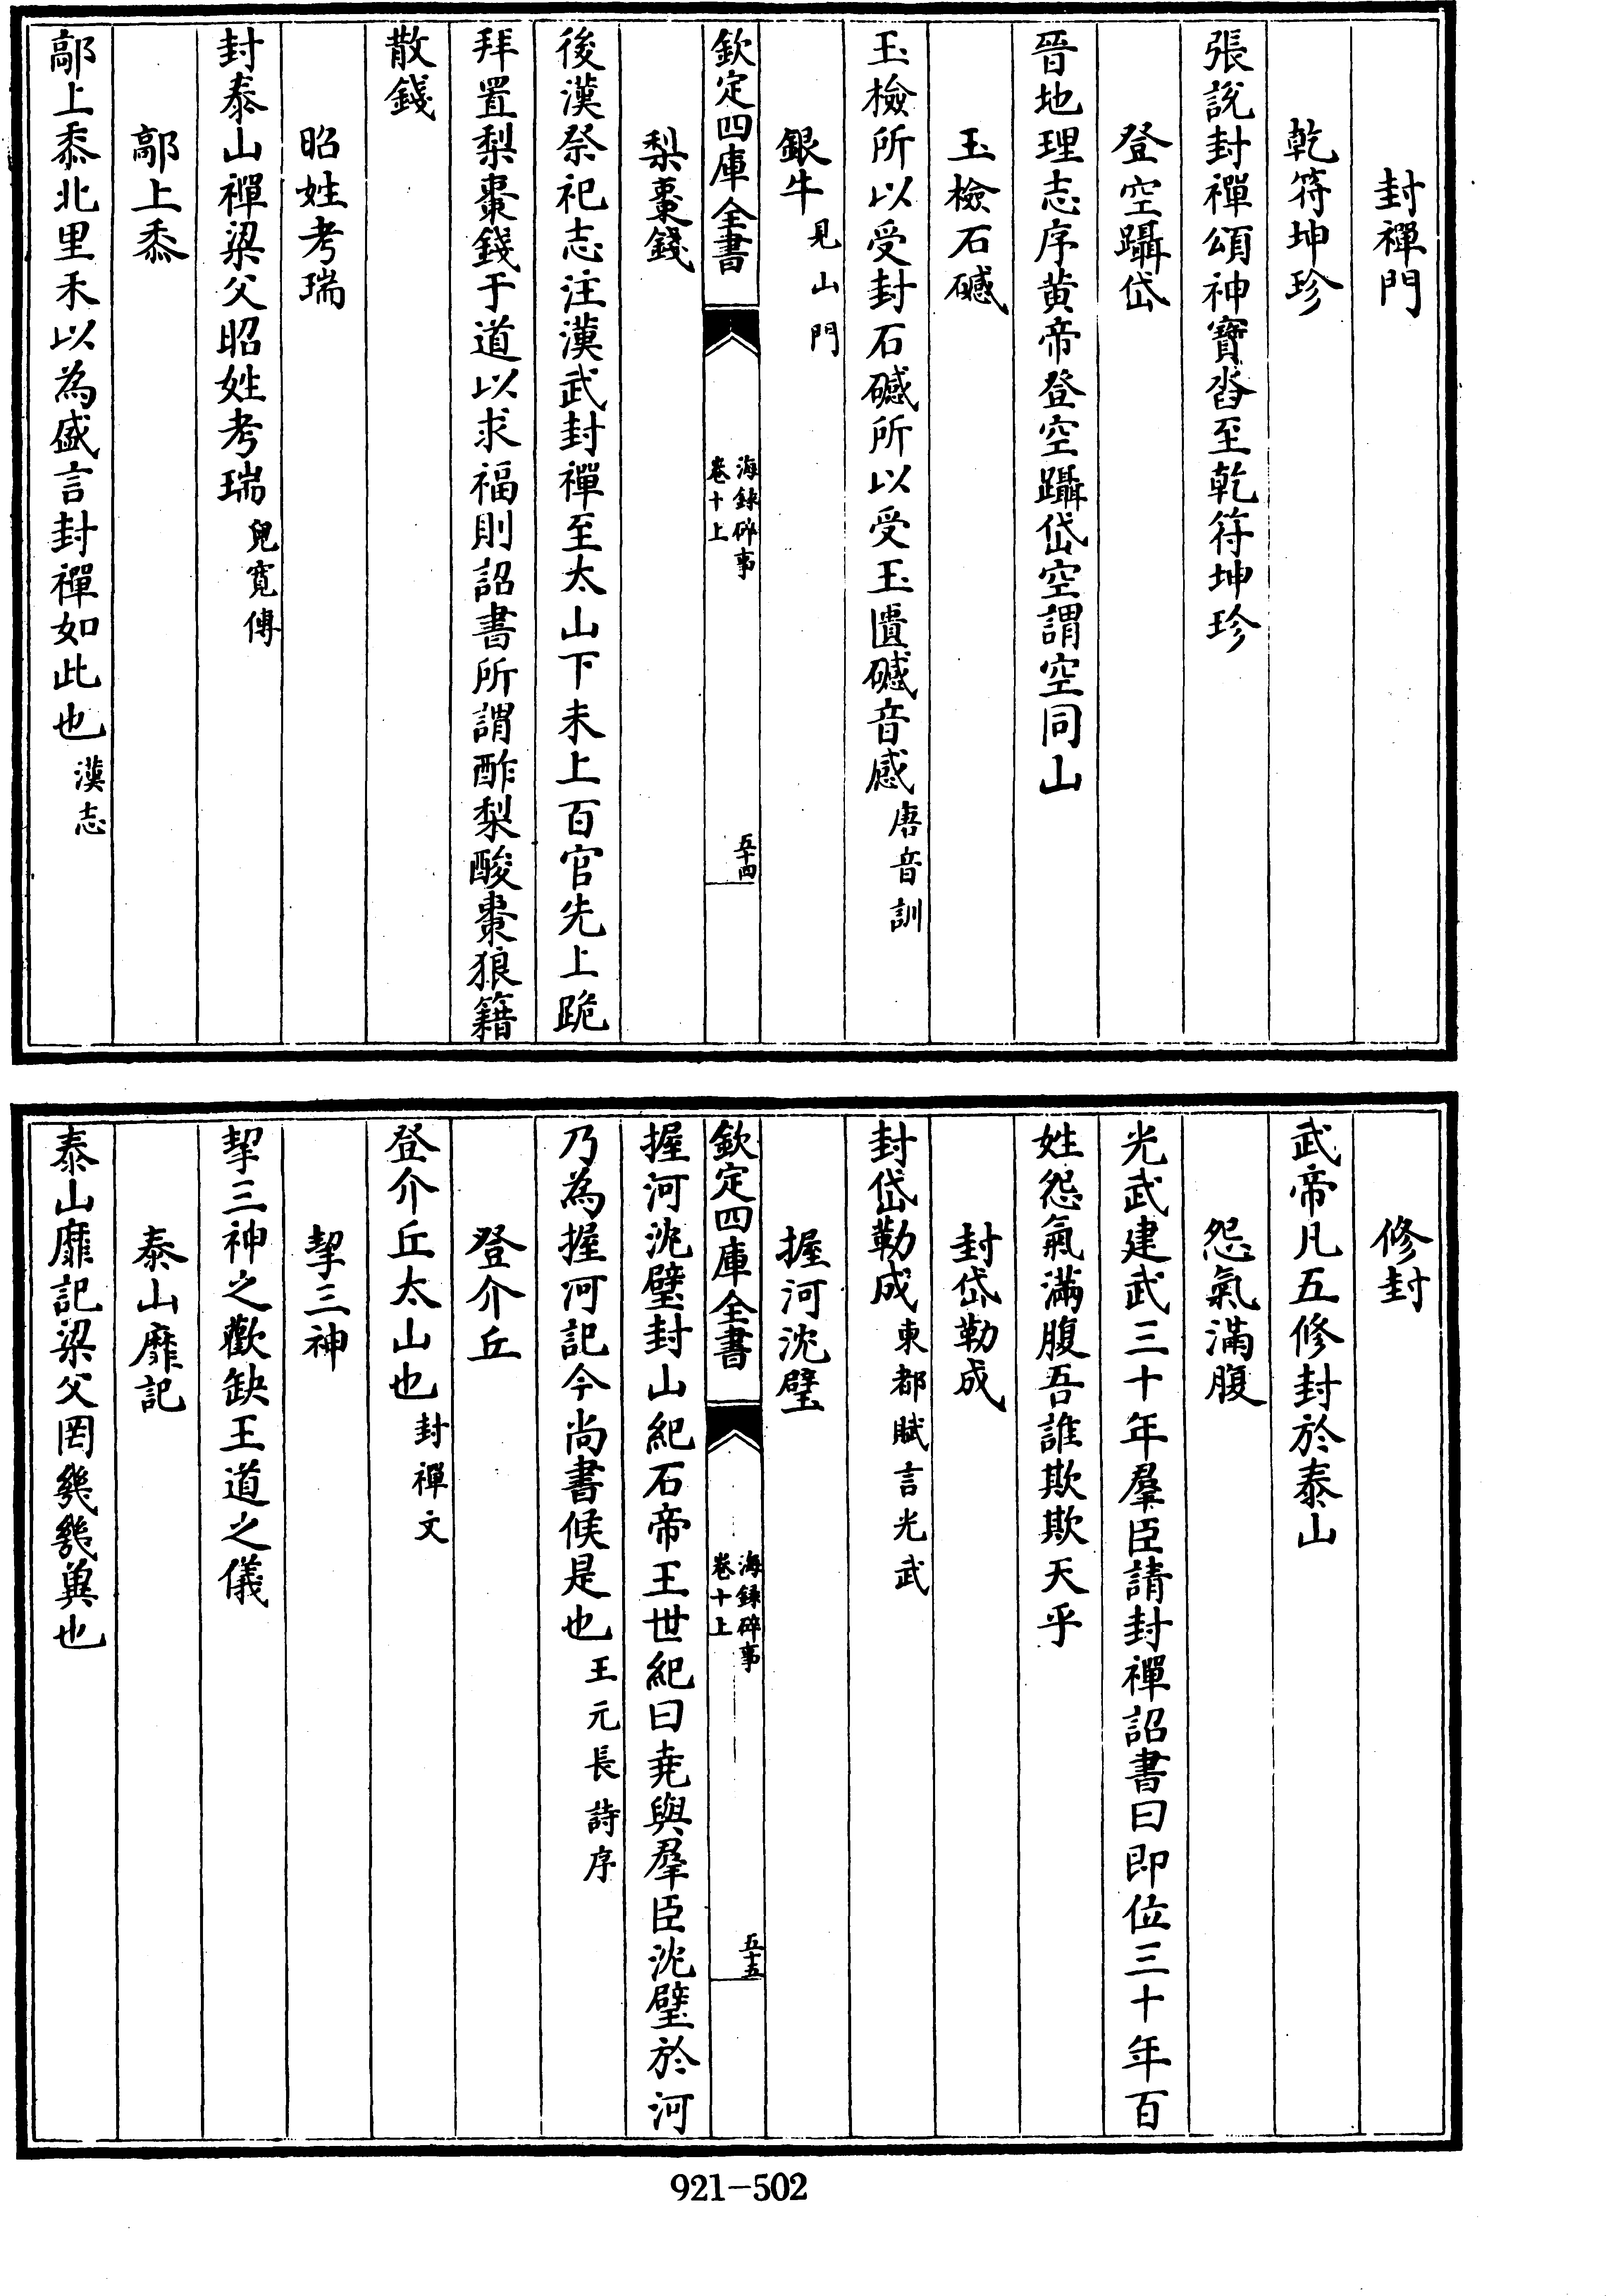 封禪門
乾符坤珍
張說封禪頌神寶沓至乾符坤珍
登空躡岱
晉地理志序黄帝登空躡岱空謂空同山
玉檢石䃭
玉檢所以受封石䃭所以受玉匱䃭音感唐音訓
銀牛見山門
欽定四庫全書
海録碎事
卷十上
五十四
梨棗錢
後漢祭祀志注漢武封禪至太山下未上百官先上跪
拜置梨棗錢于道以求福則詔書所謂酢梨酸棗狼籍
散錢
昭姓考瑞
封泰山禪梁父昭姓考瑞兒寛傳
鄗上黍
鄗上黍北里禾以為盛言封禪如此也漢志
修封
武帝凡五修封於泰山
怨氣滿腹
光武建武三十年羣臣請封禪詔書曰即位三十年百
姓怨氣滿腹吾誰欺欺天乎
封岱勒成
封岱勒成東都賦言光武
握河沈璧
欽定四庫全書
海録碎事
卷十上
五十五
握河沈璧封山紀石帝王世紀曰堯與羣臣沈璧於河
乃為握河記今尚書候是也王元長詩序
登介丘
登介丘太山也封禪文
挈三神
挈三神之歡缺王道之儀
泰山靡記
泰山靡記梁父罔㡬㡬冀也
921-502